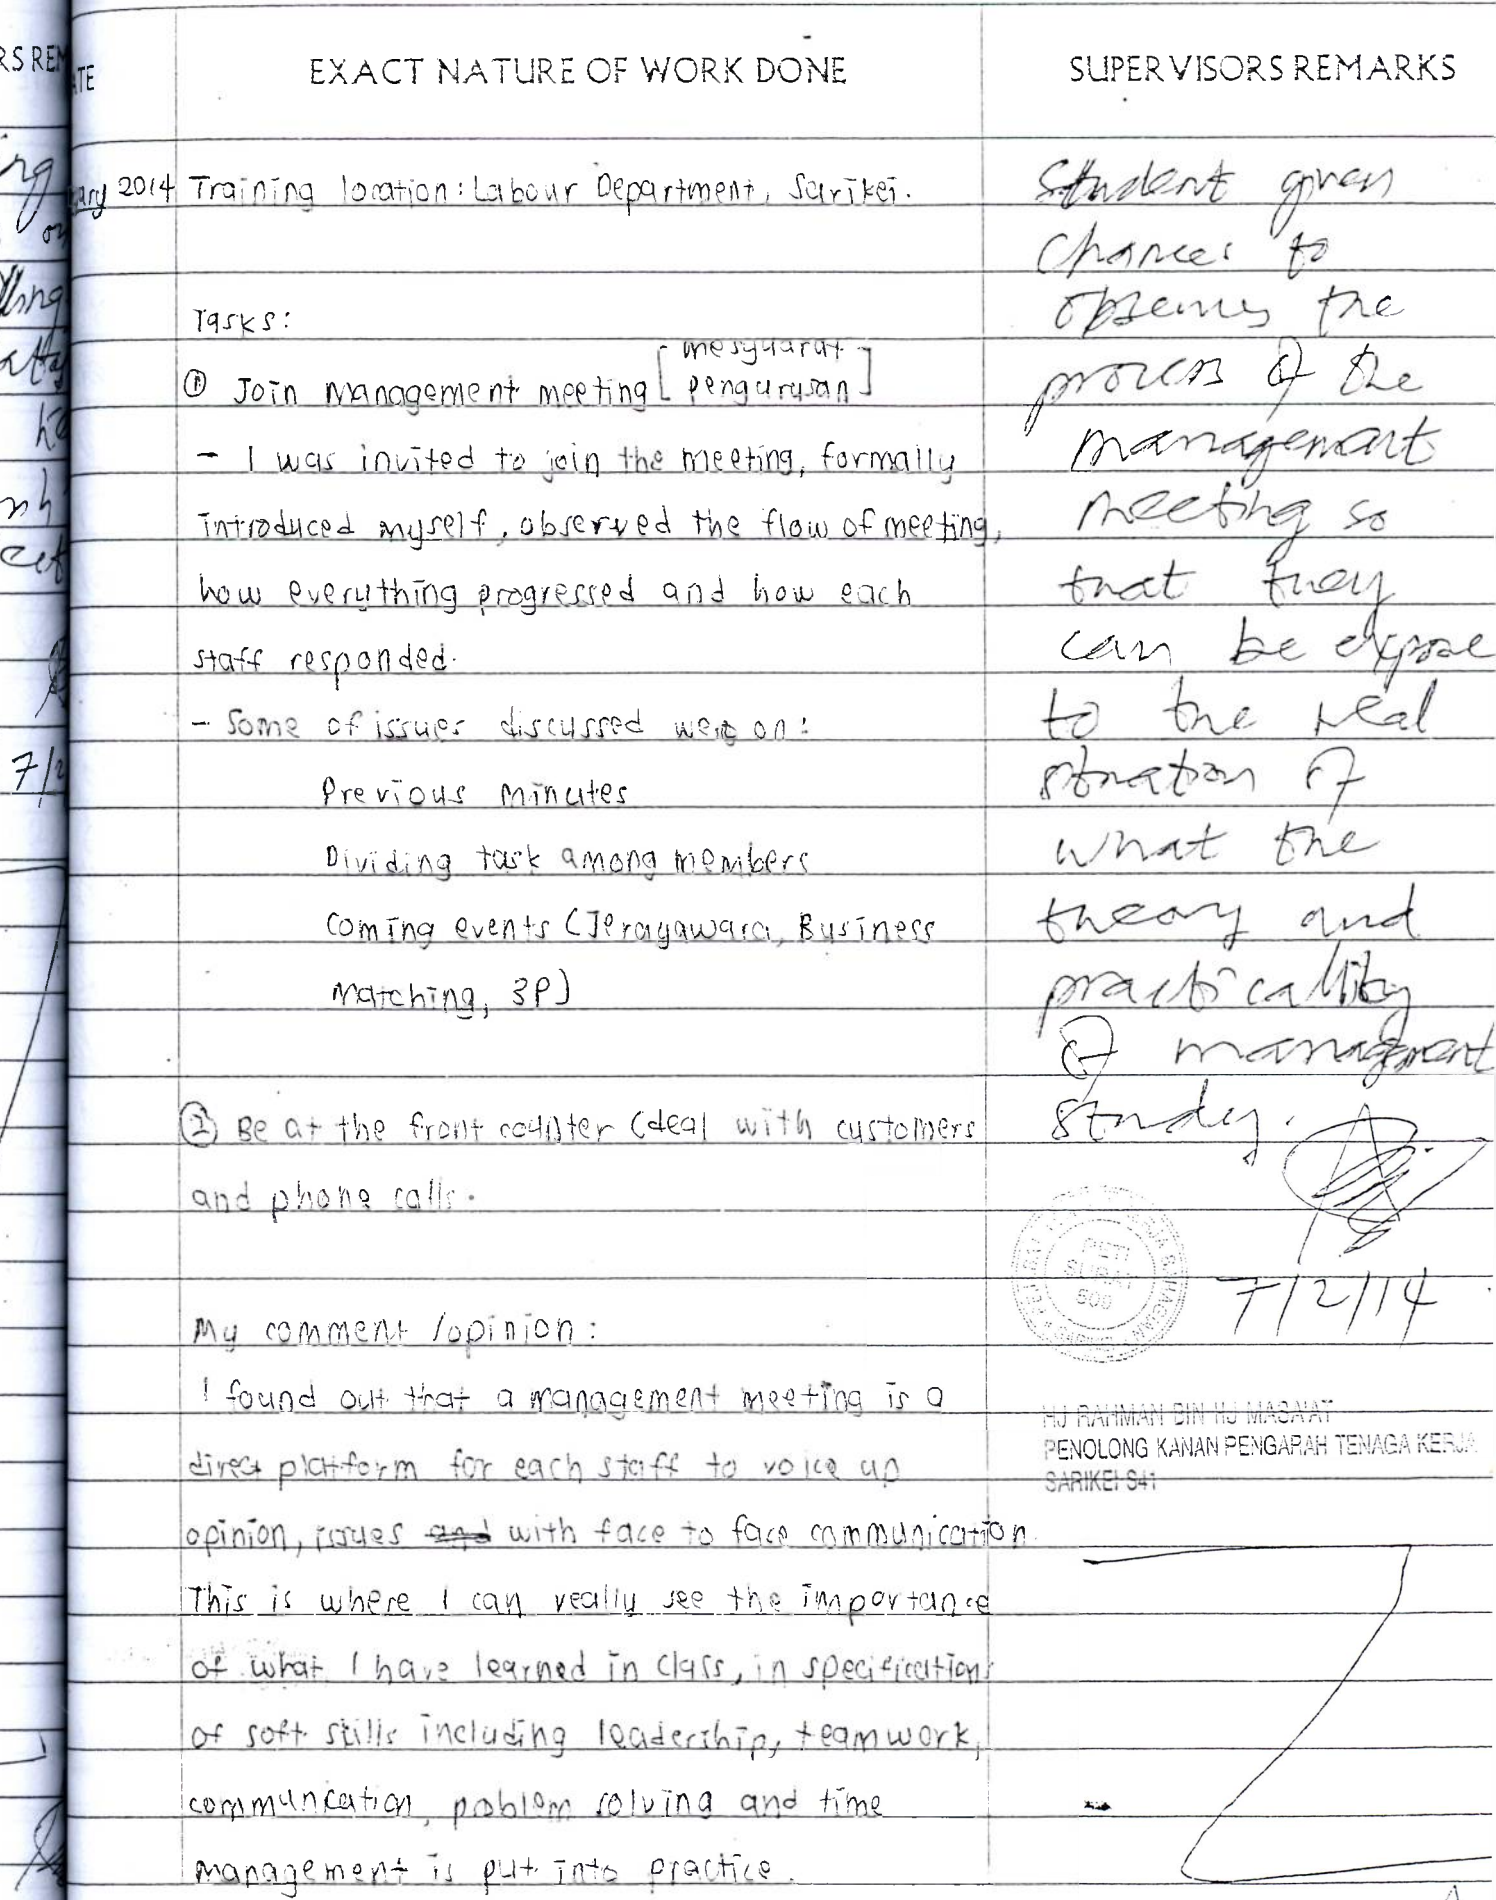 RS REM
ATE
EXACT NATURE OF WORK DONE
SUPERVISORS REMARKS
ary 2014
Training location: Labour Department, Sarikei.
Tasks:
① Join Management meeting [mesyuarat pengurusan]
- I was invited to join the meeting, formally
introduced myself, observed the flow of meeting,
how everything progressed and how each
staff responded.
- Some of issues discussed were on:
Previous minutes
Dividing task among members
Coming events (Jerayawara, Business
Matching, 3P)
② Be at the front counter (deal with customers
and phone calls.
My comment /opinion:
I found out that a management meeting is a
direct platform for each staff to voice up
opinion, issues and with face to face communication.
This is where I can really see the importance
of what I have learned in class, in specifications
of soft skills including leadership, teamwork,
communcation, problem solving and time
management is put into practice.
Student given
chances to
observes the
process of the
management
meeting so
that they
can be expose
to the real
situation of
what the
theory and
practicallity
of management
study.
7/2/14
PETI
SURAT
500
HJ RAHMAN BIN HJ MASA'AT
PENOLONG KANAN PENGARAH TENAGA KERJA
SARIKEI S41